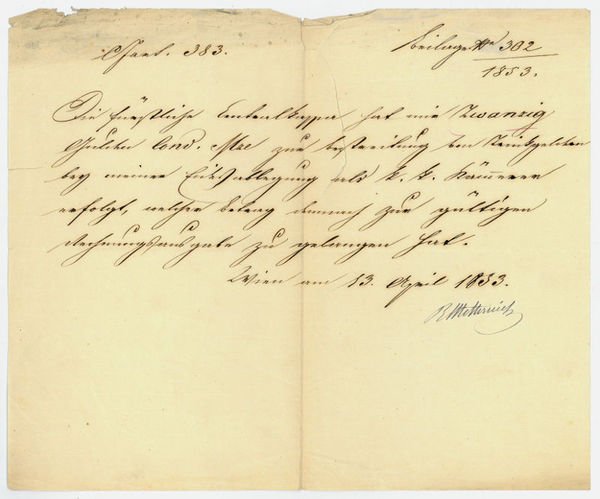 Beilage Nr 302
1853.
Die fürstliche Centralkassa hat mir Zwanzig
Gulden Cond. Mze zur Bestreitung von Trinkgeldern
bey meiner Eidesablegung als k. k. Kämerer
erfolgt, welcher Betrag demnach zur gültigen
Rechnungsausgabe zu gelangen hat.
Wien am 13. April 1853.
RMetternich